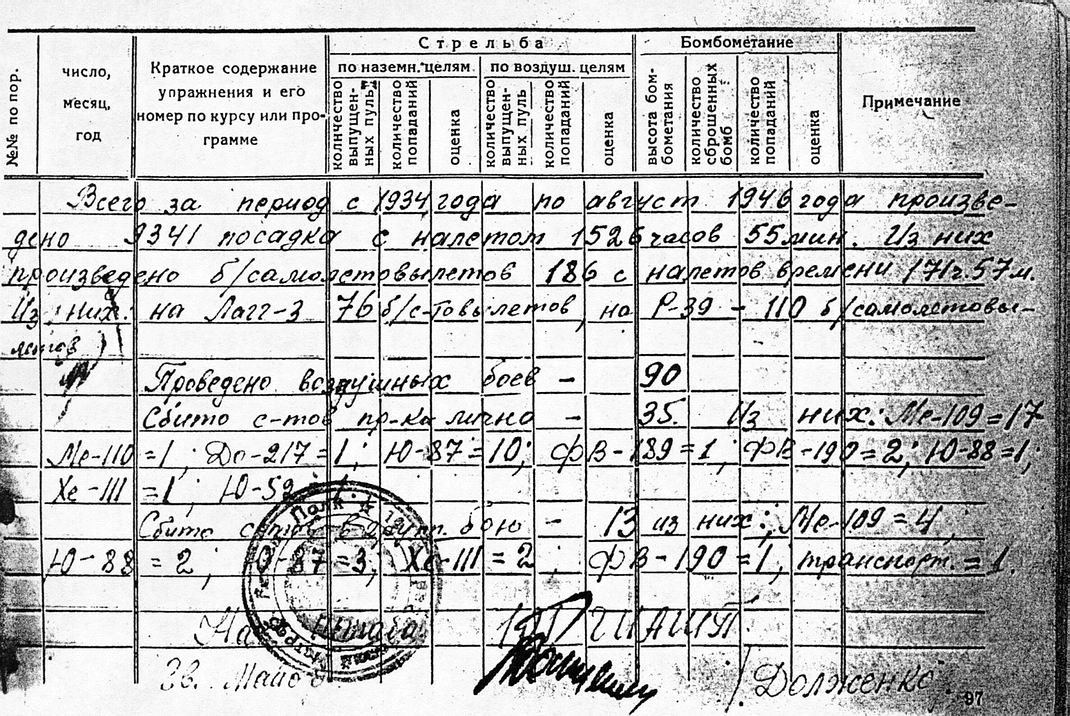 №№ по пор.
число, месяц, год
Краткое содержание
упражнения и его
номер по курсу или про-
грамме
Стрельба
по наземн. целям
количество выпущен-ных пуль
количество попаданий
оценка
по воздуш. целям
количество выпущен-ных пуль
количество попаданий
оценка
Бомбометание
высота бом-бометания
количество сброшенных бомб
количество попаданий
оценка
Примечание
Всего за период с 1934 года по август 1946 года произве-
дено 9341 посадка с налетом 1526 часов 55 мин. Из них
произведено б/самолетовылетов 186 с налетов времени 171 г. 57 м.
Из них: на Лагг-3 76 б/с-товылетов, на Р-39 - 110 б/самолетовы-
летов
Проведено воздушных боев - 90
Сбито с-тов пр-ка лично - 35. Из них: Ме-109 = 17
Ме-110 = 1; До-217 = 1; Ю-87 = 10; ФВ-189 = 1; ФВ-190 = 2; Ю-88 = 1;
Хе-111 = 1; Ю-52 = 1
Сбито с-тов в групп. бою - 13 из них: Ме-109 = 4,
Ю-88 = 2; Ю-87 = 3; Хе-111 = 2; ФВ-190 = 1, транспорт. = 1.
штаба ГИАП
Гв. Майор /Долженко
97